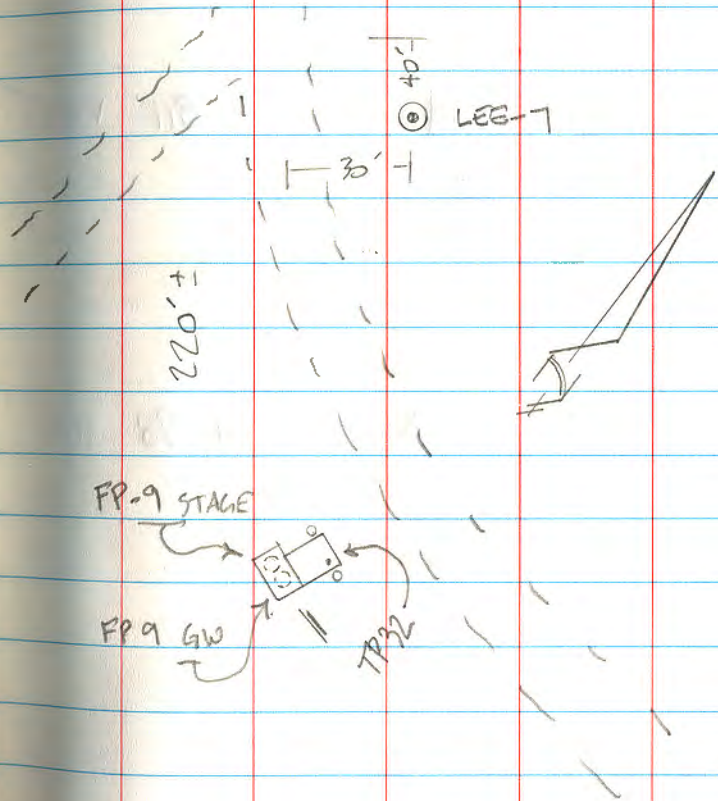 40'±
LEE-7
30'
220'±
FP-9 STAGE
FP 9 GW
TP32